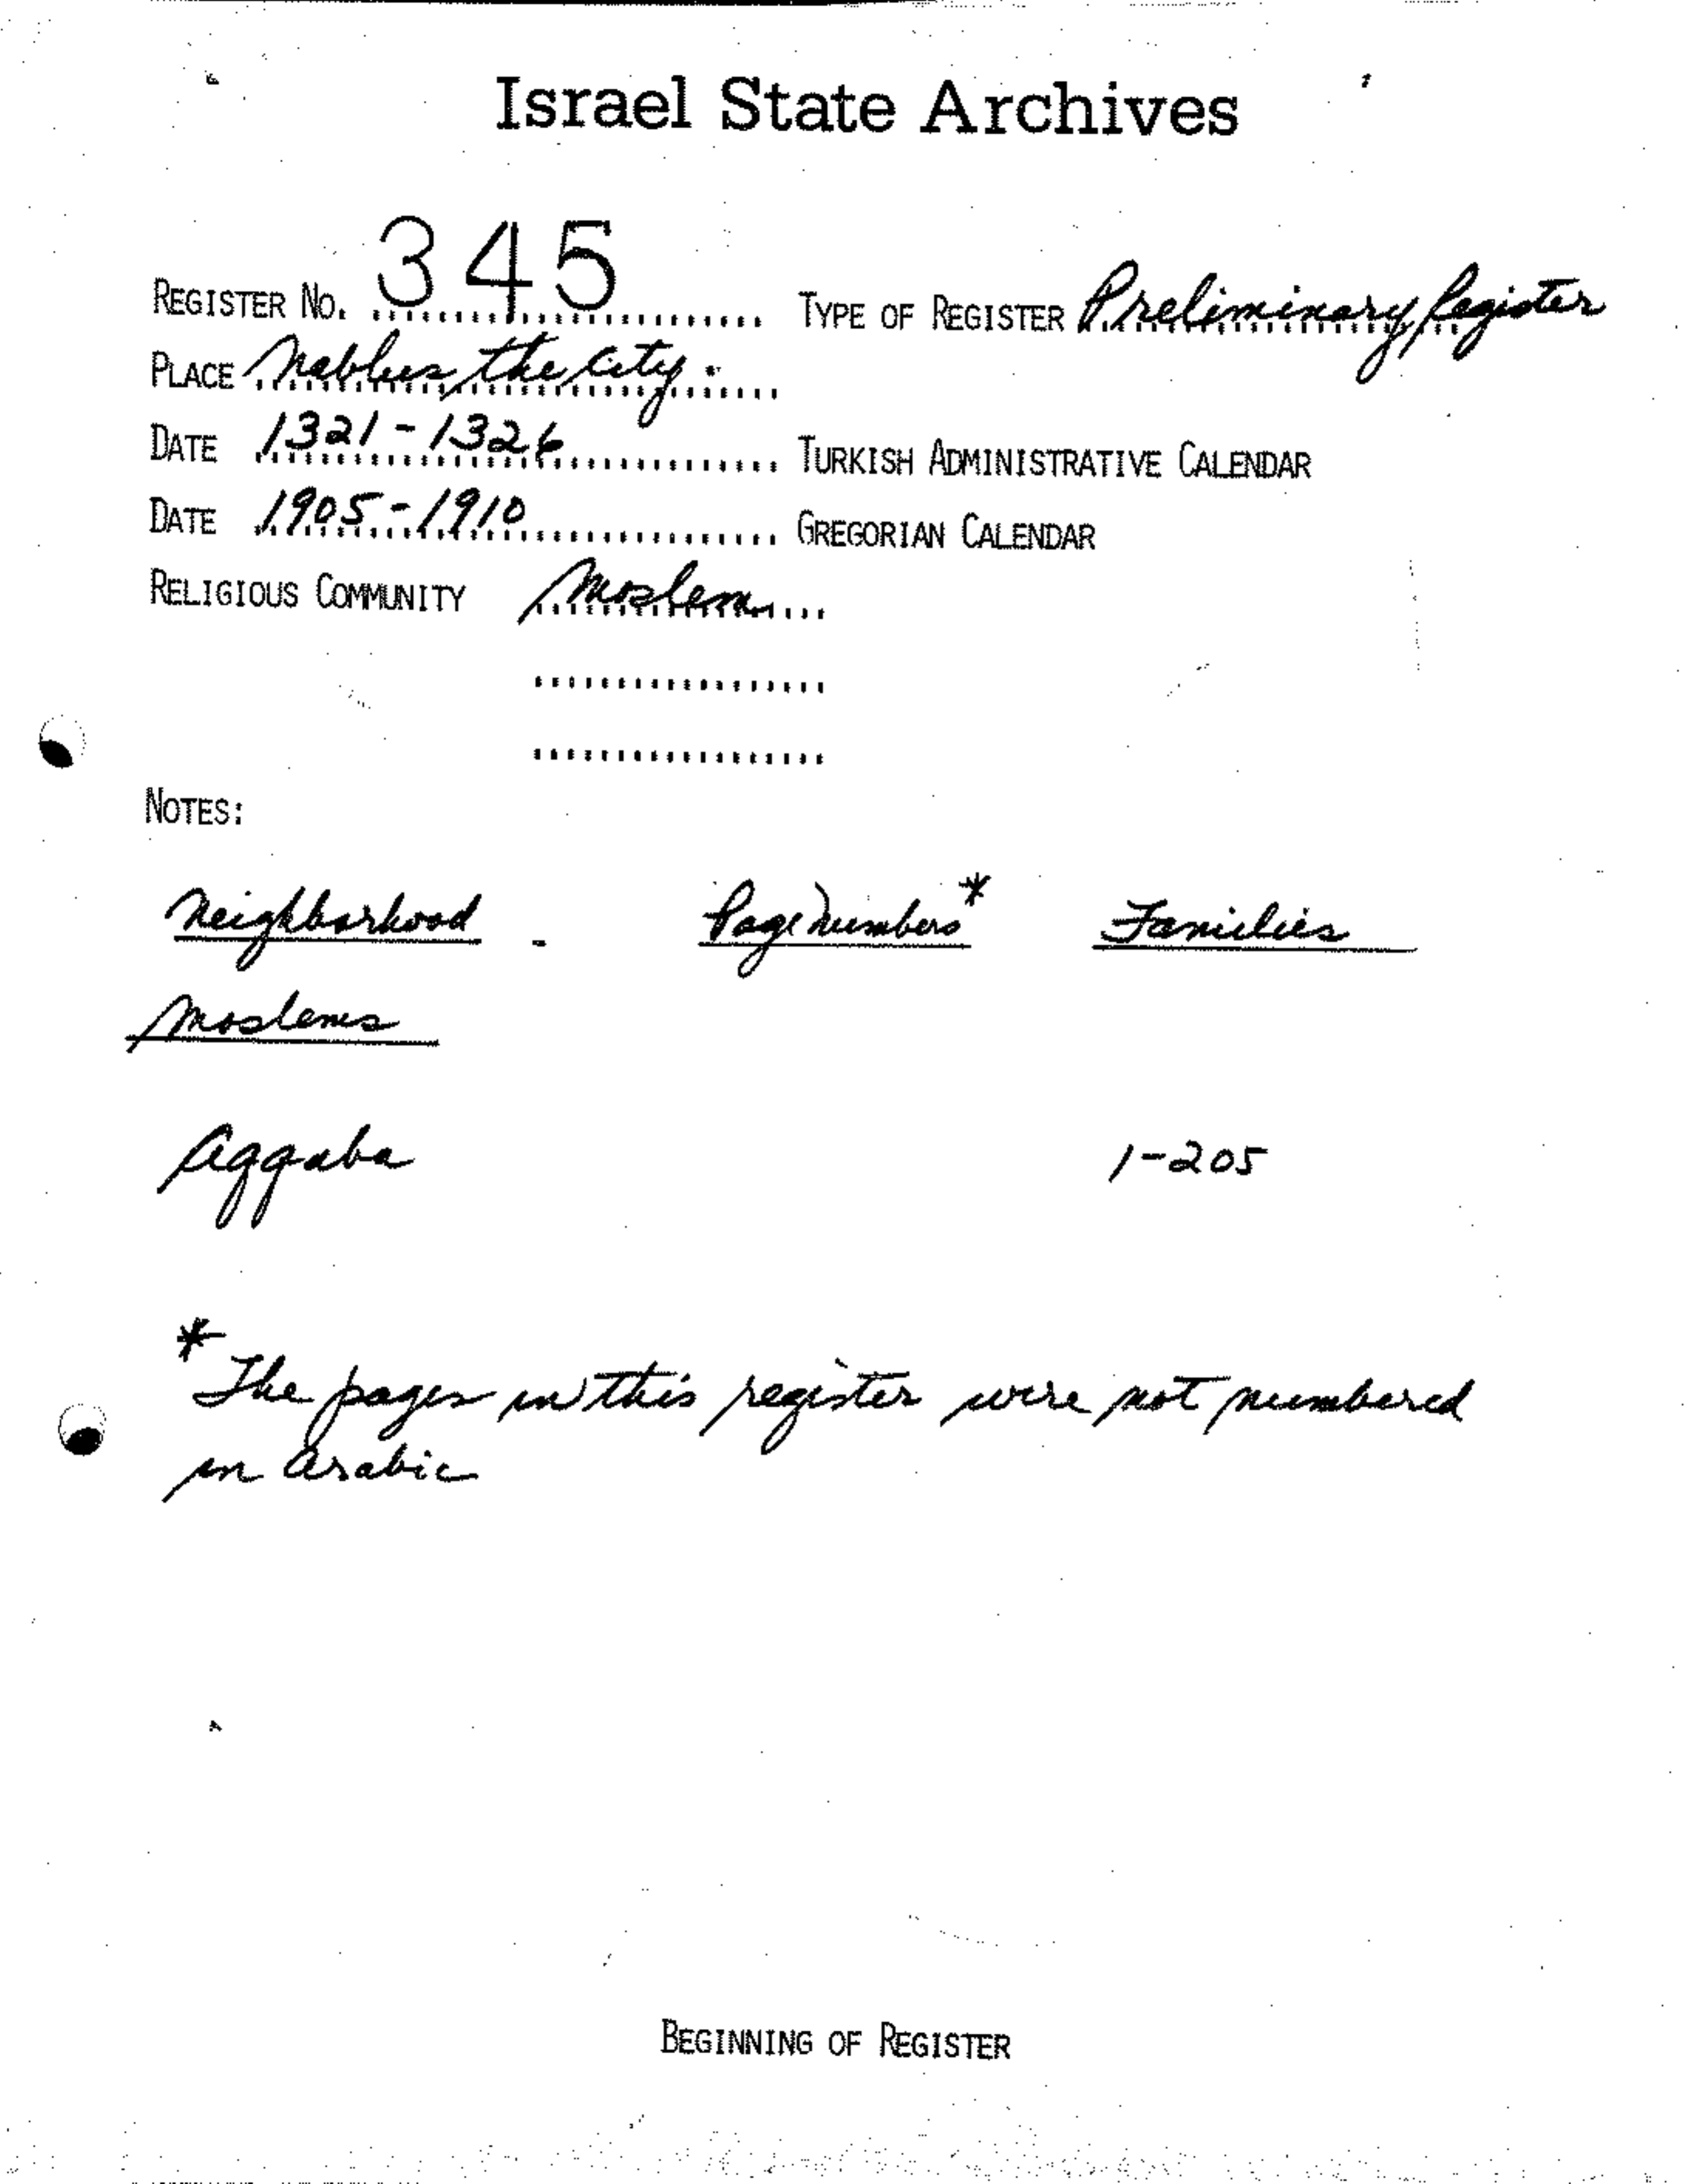 Israel State Archives
REGISTER NO. 345 TYPE OF REGISTER Preliminary Register
PLACE Nablus, the City.
DATE 1321-1326 TURKISH ADMINISTRATIVE CALENDAR
DATE 1905-1910 GREGORIAN CALENDAR
RELIGIOUS COMMUNITY Moslem
NOTES:
Neighborhood - Page Numbers* Families
Moslems
Aqqaba 1-205
* The pages in this register were not numbered
in Arabic
BEGINNING OF REGISTER